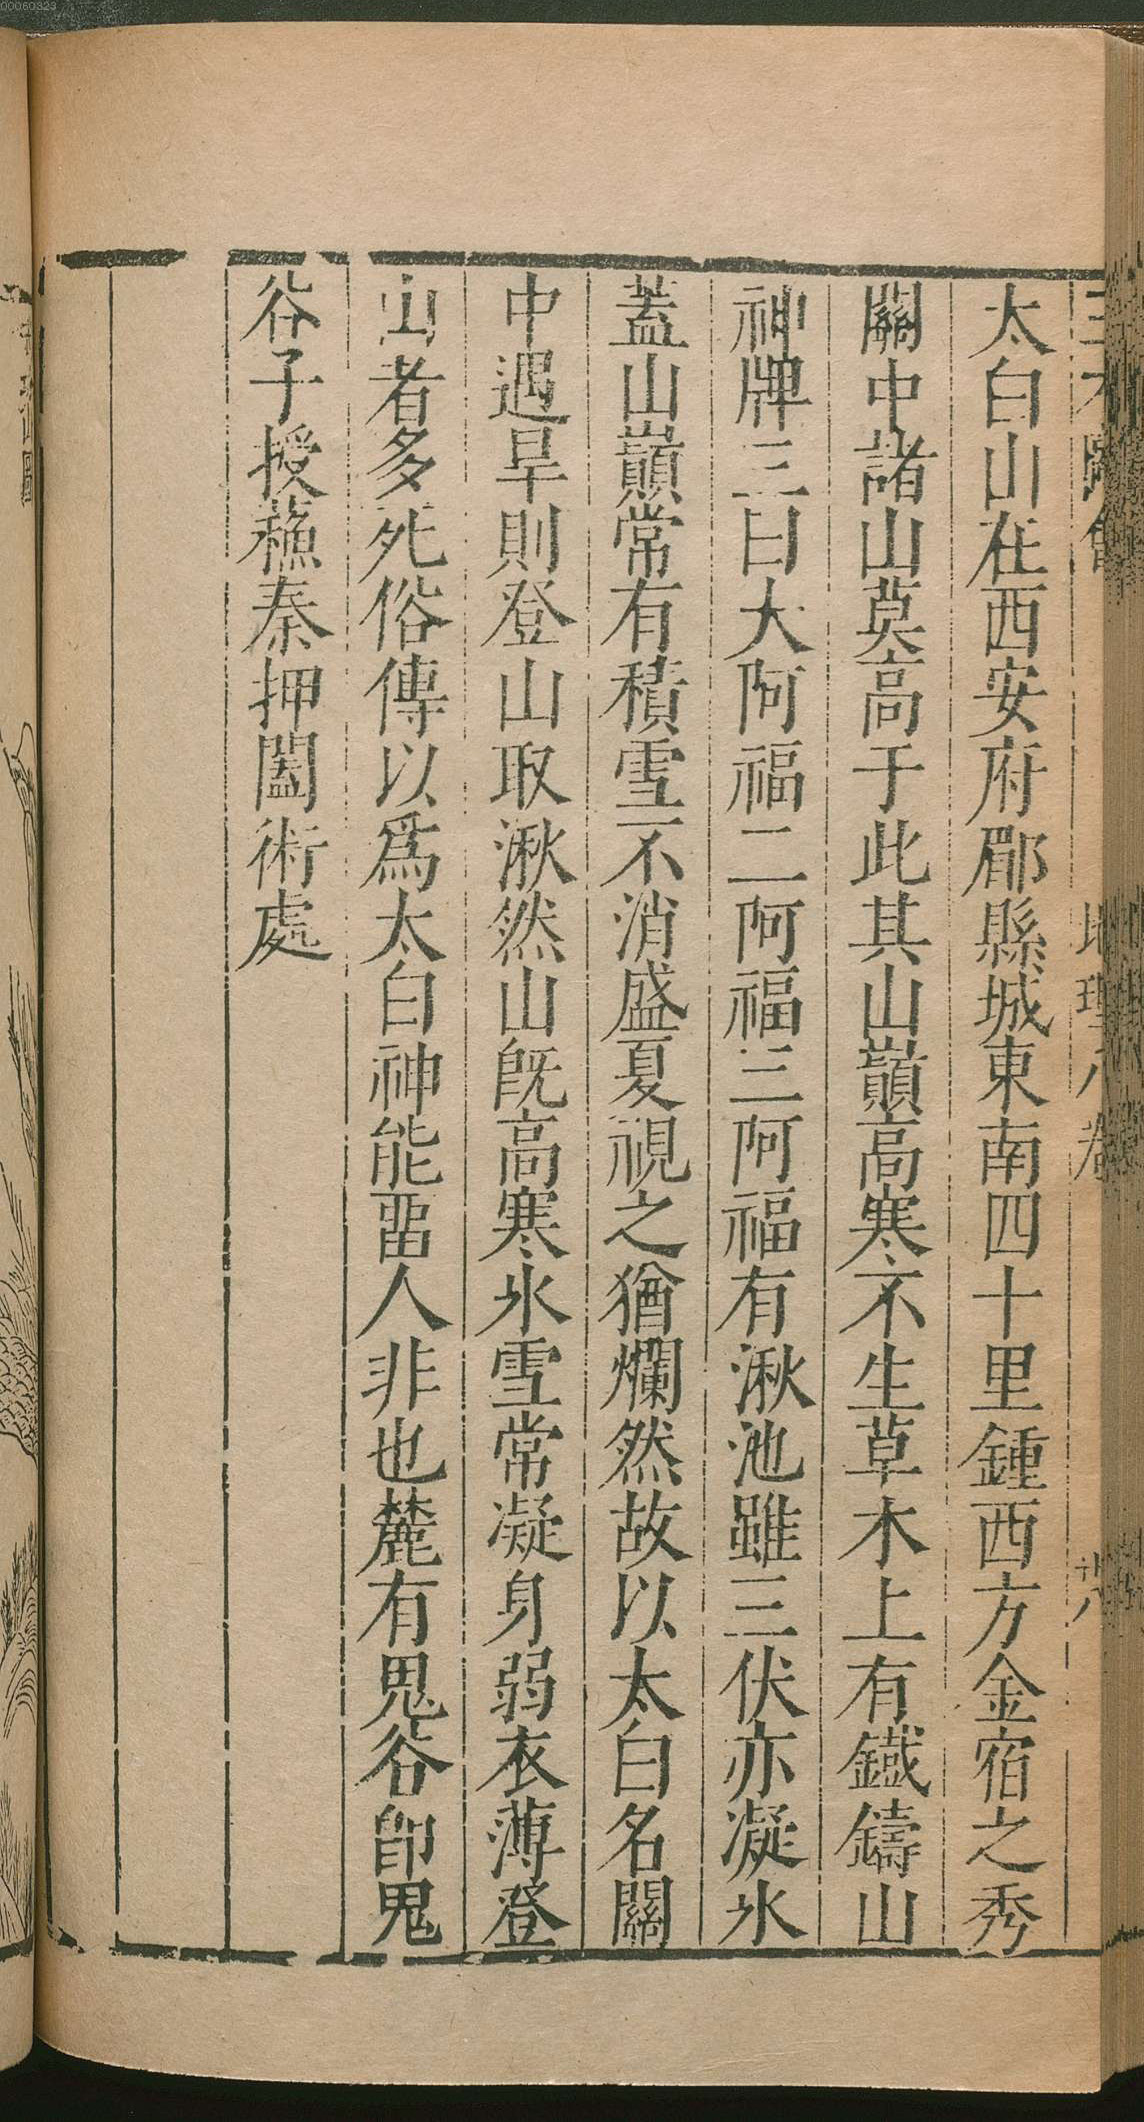 太白山在西安府郿縣城東南四十里鍾西方金宿之秀
關中諸山莫高于此其山巔高寒不生草木上有鐵鑄山
神牌三曰大阿福二阿福三阿福有湫池雖三伏亦凝氷
蓋山巔常有積雪不消盛夏視之猶爛然故以太白名關
中遇旱則登山取湫然山旣高寒氷雪常凝身弱衣薄登
山者多死俗傳以爲太白神能畱人非也麓有鬼谷卽鬼
谷子授蘓秦押闔術處
地理八卷
00060323